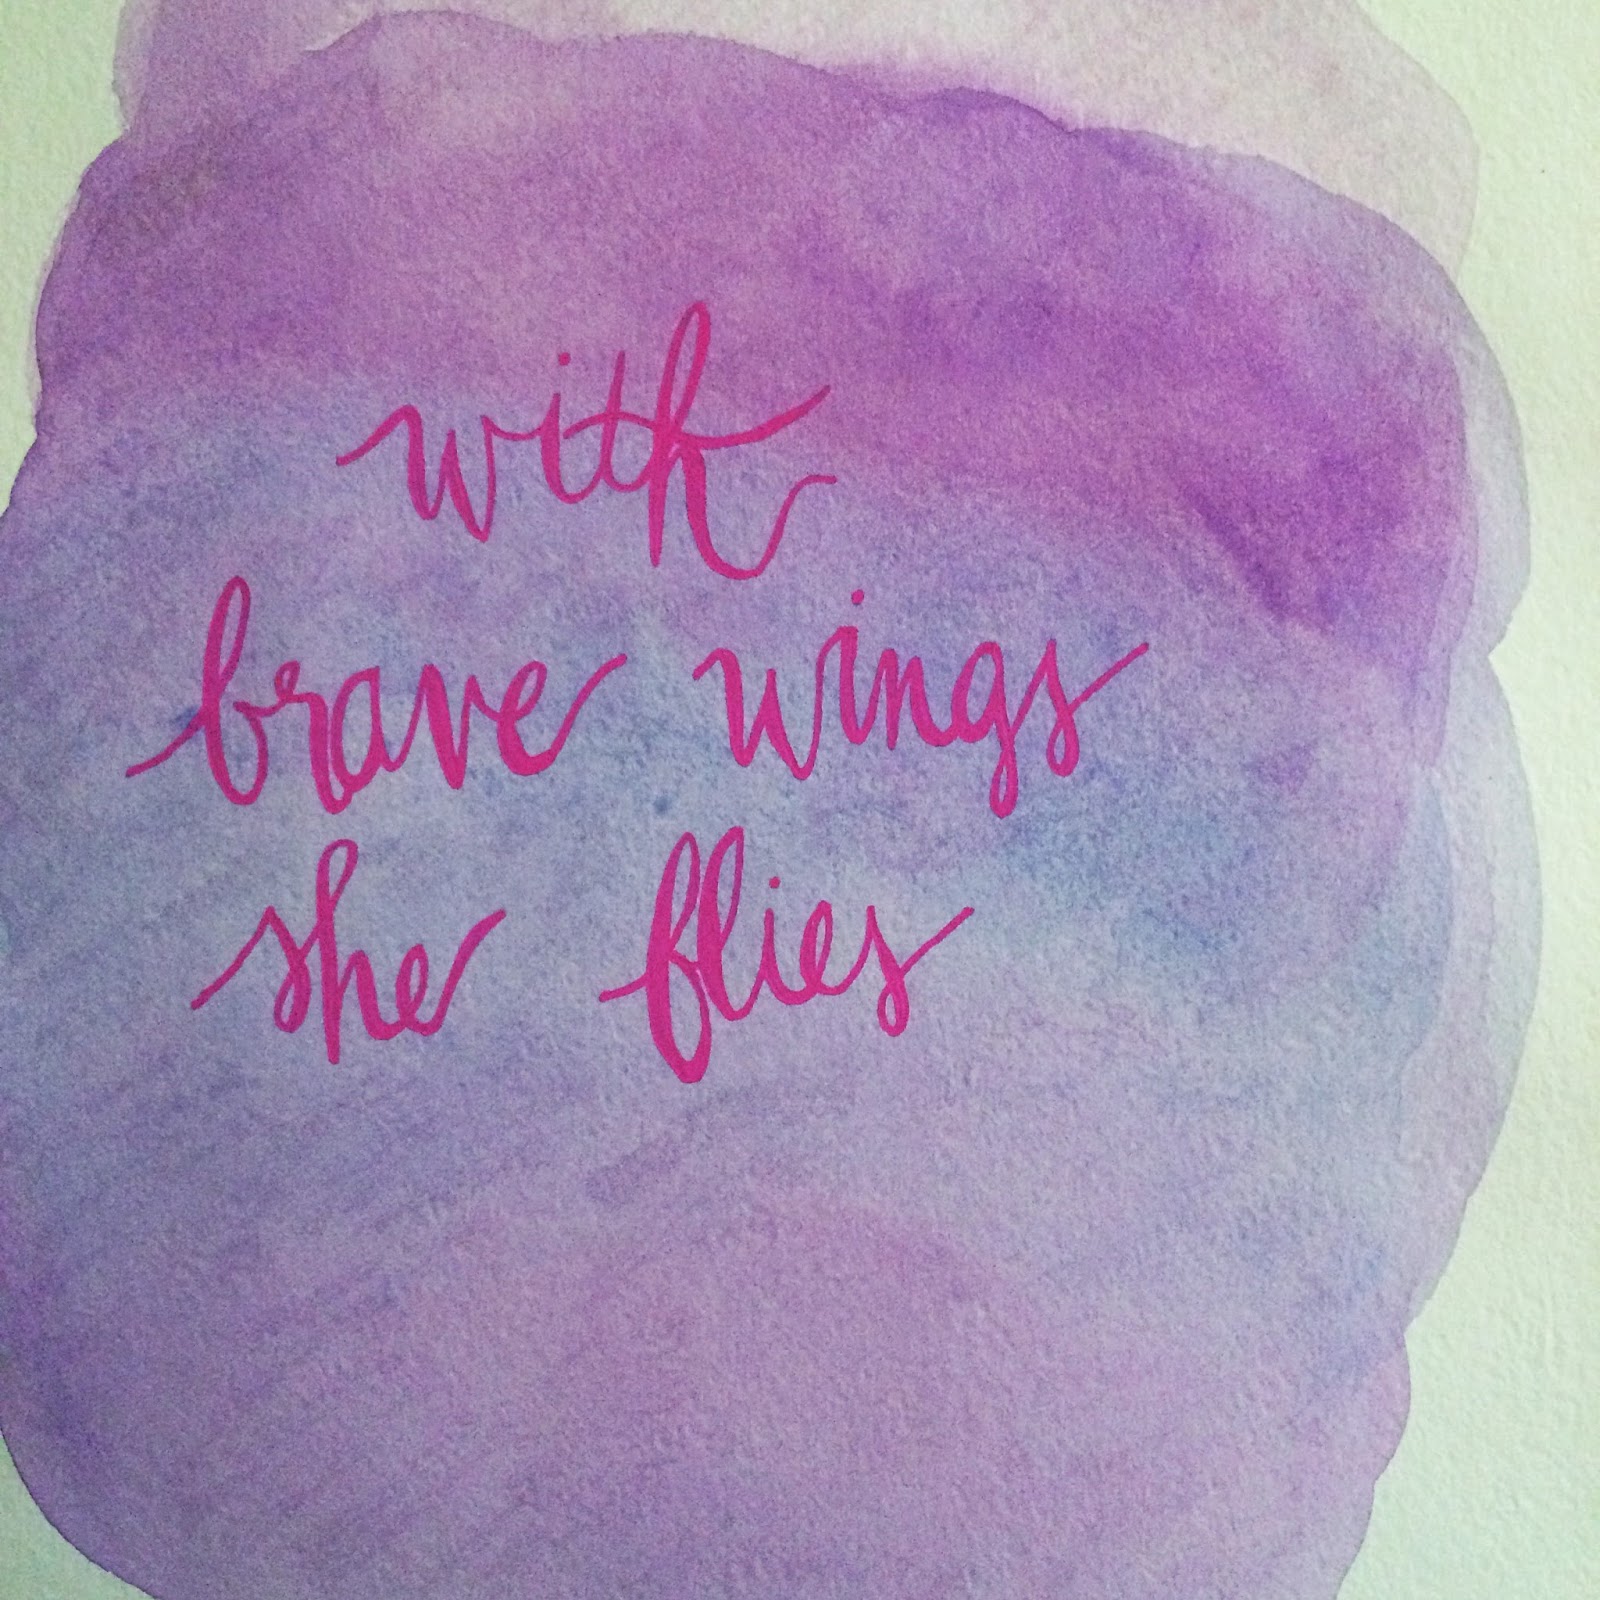 with
brave wings
she flies